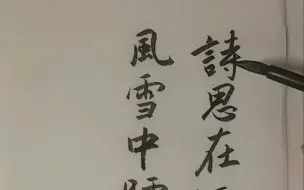 詩思在
風雪中